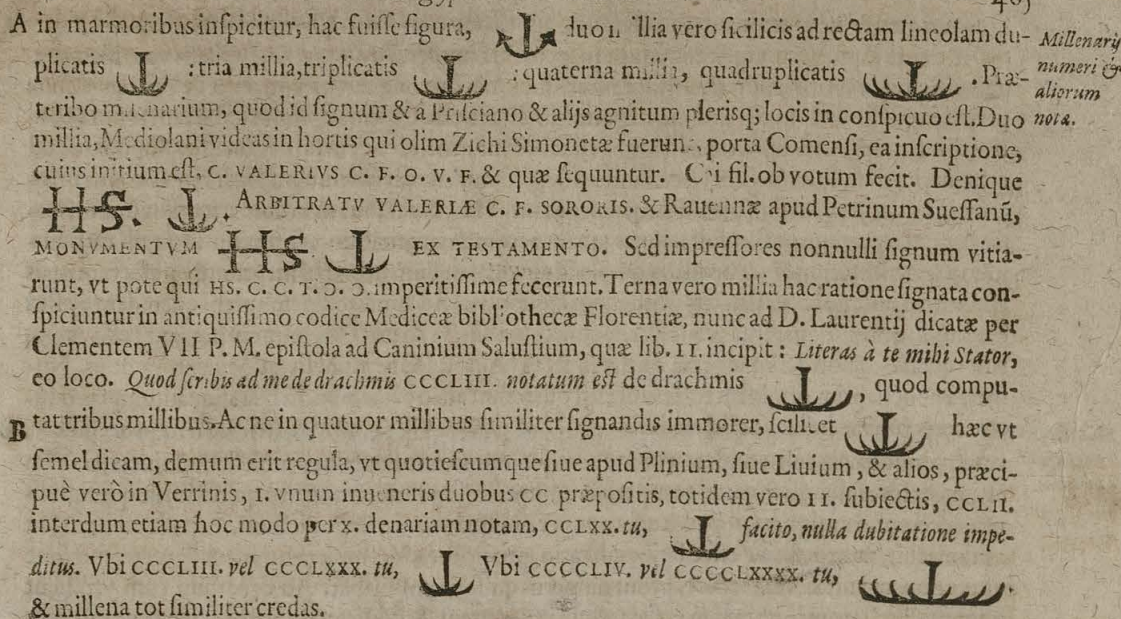 A in marmoribus inſpicitur, hac fuiſſe figura, duo llia vero ſicilicis ad rectam lineolam du-
Millenarij
plicatis : tria millia, triplicatis : quaterna millia, quadruplicatis . Præ-
numeri &
aliorum
teribo millenarium, quod id ſignum & à Priſciano & alijs agnitum plerisq; locis in conſpicuo eſt. Duo
notæ.
millia, Mediolani videas in hortis qui olim Zichi Simonetæ fuerun , porta Comenſi, ea inſcriptione,
cuius initium eſt, C. VALERIVS C. F. O. V. F. & quæ ſequuntur. C i fil. ob votum fecit. Denique
HS. . ARBITRATV VALERIÆ C. F. SORORIS. & Rauennæ apud Petrinum Sueſſanũ,
MONVMENTVM HS EX TESTAMENTO. Sed impreſſores nonnulli ſignum vitia-
runt, vt pote qui HS. C. C. T. Ɔ. Ɔ. imperitiſſime fecerunt. Terna vero millia hac ratione ſignata con-
ſpiciuntur in antiquiſſimo codice Mediceæ bibl othecæ Florentiæ, nunc ad D. Laurentij dicatæ per
Clementem VII P. M. epiſtola ad Caninium Saluſtium, quæ lib. II. incipit : Literas à te mihi Stator,
eo loco. Quod ſcribis ad me de drachmis CCCLIII. notatum eſt de drachmis , quod compu-
tat tribus millibus. Ac ne in quatuor millibus ſimiliter ſignandis immorer, ſcilicet hæc vt
B
ſemel dicam, demum erit regula, vt quotieſcumque ſiue apud Plinium, ſiue Liuium, & alios, præci-
puè verò in Verrinis, I. vnum inueneris duobus CC præpoſitis, totidem vero II. ſubiectis, CCLII.
interdum etiam hoc modo per x. denariam notam, CCLXX. tu, facito, nulla dubitatione impe-
ditus. Vbi CCCLIII. vel CCCLXXX. tu, Vbi CCCCLIV. vel CCCCLXXXX. tu, .
& millena tot ſimiliter credas.